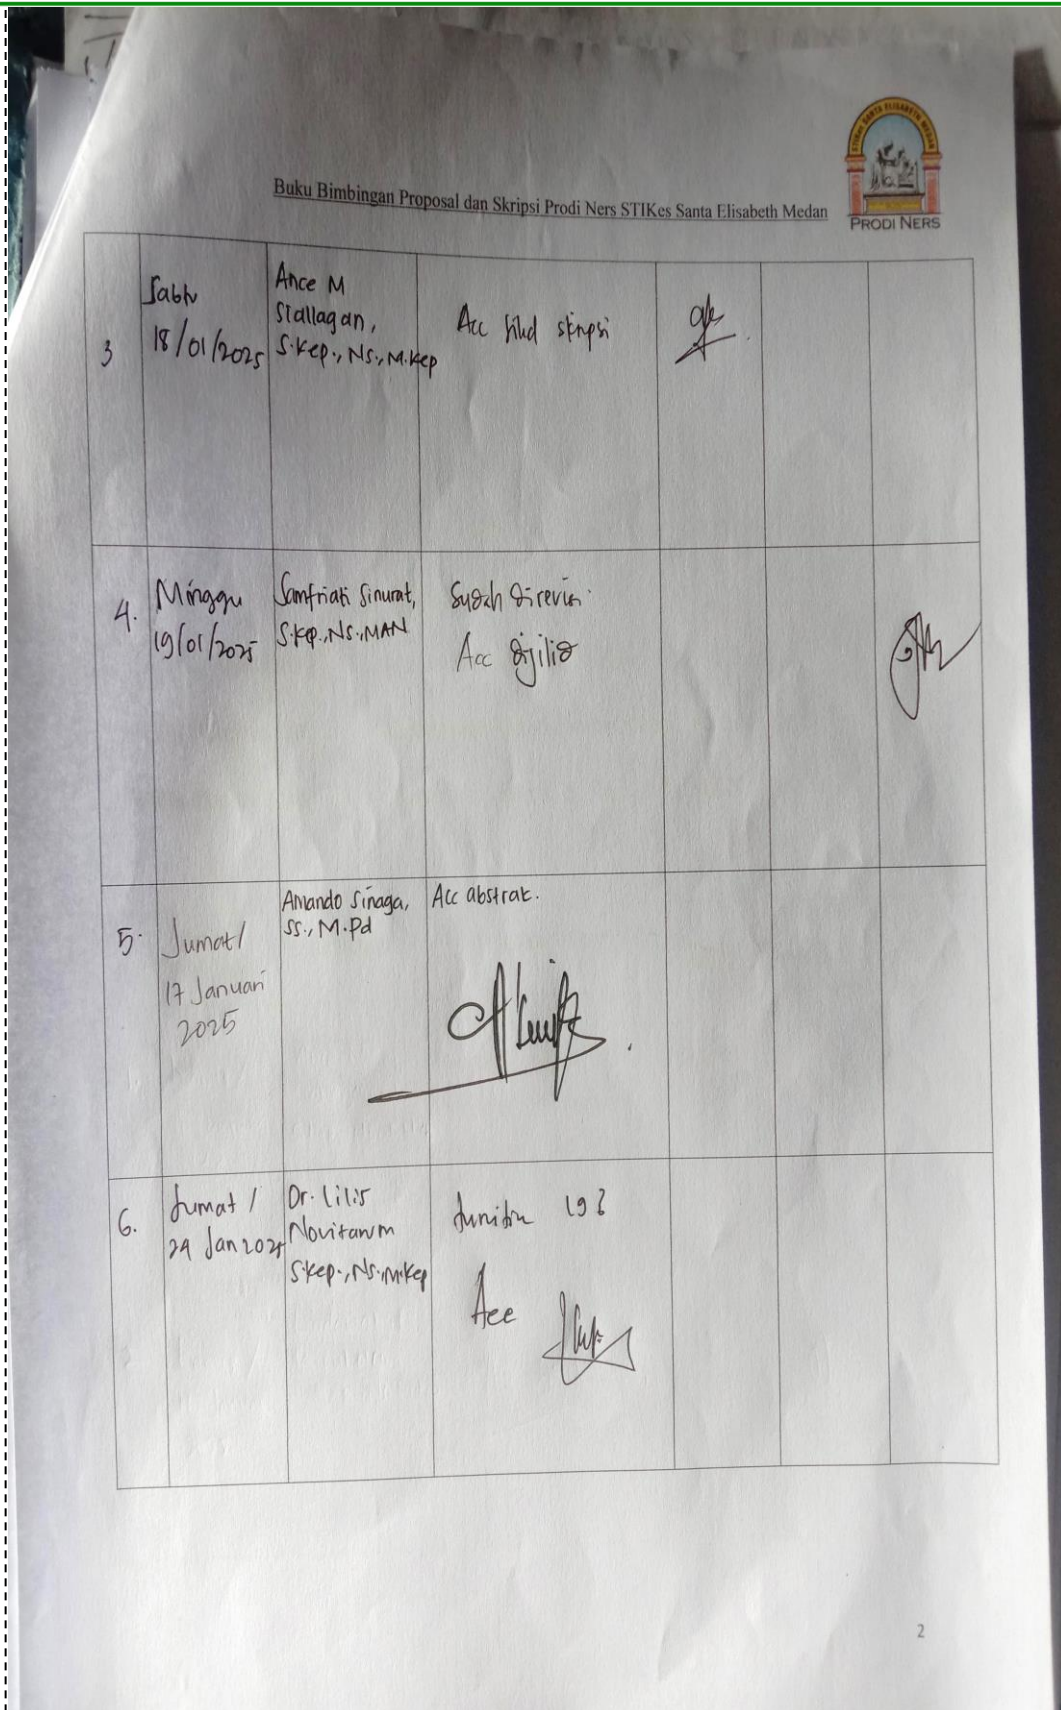 STIKes SANTA ELISABETH MEDAN
PRODI NERS
Buku Bimbingan Proposal dan Skripsi Prodi Ners STIKes Santa Elisabeth Medan
3
Sabtu
18/01/2025
Ance M
Siallagan,
S.Kep., Ns., M.Kep
Acc jilid skripsi
4.
Minggu
19/01/2025
Samfriati Sinurat,
S.Kep., Ns., MAN
Sudah direvisi.
Acc dijilid
5.
Jumat/
17 Januari
2025
Amando Sinaga,
SS., M.Pd
Acc abstrak.
6.
Jumat /
24 Jan 2025
Dr. Lilis
Novitarum
S.Kep., Ns., M.Kep
Acc
2